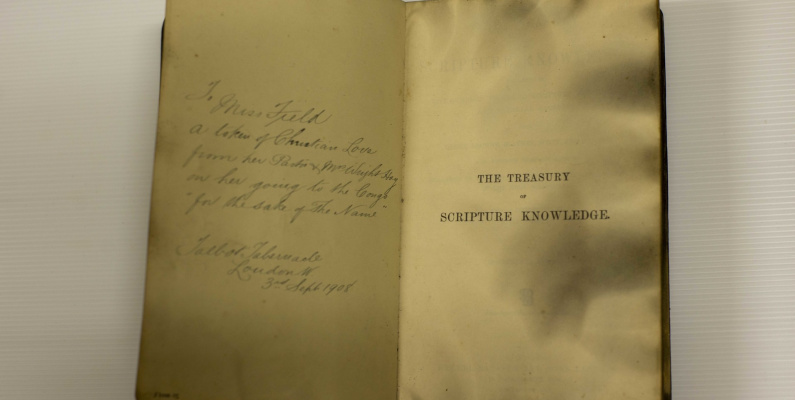 To
Miss Field
a token of Christian Love
from her Pastor & Mrs Wright Hay
on her going to the Congo
"for the sake of The Name"
Talbot Tabernacle
London W
3rd Sept 1908
THE TREASURY
OF
SCRIPTURE KNOWLEDGE.